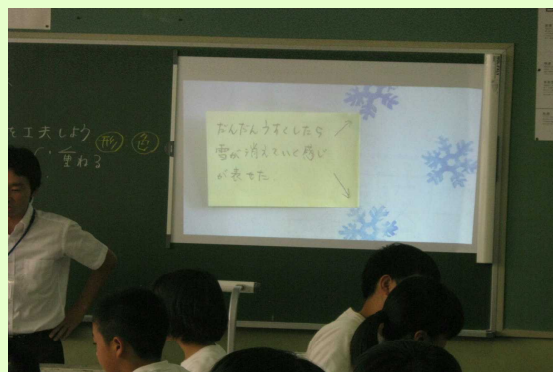 を工夫しよう 形 色
重ねる
だんだんうすくしたら
雪が消えていく感じ
が表せた。